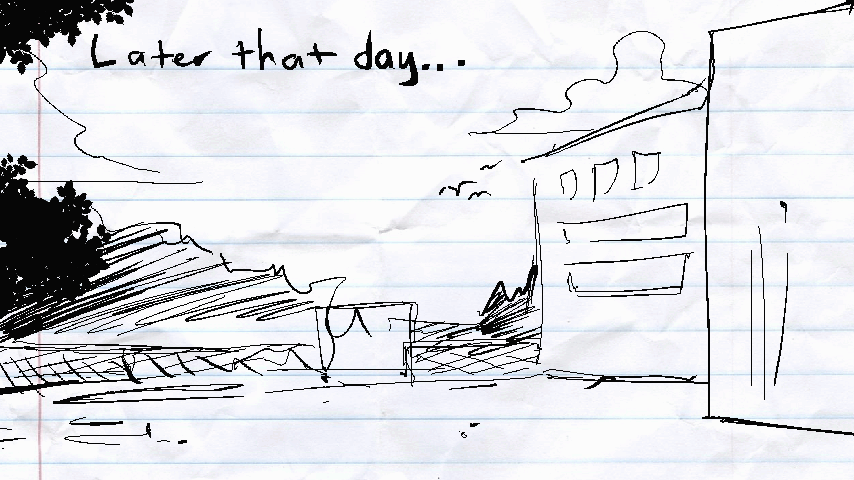 Later that day...